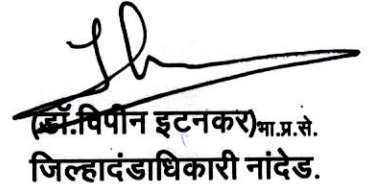 (डॉ.विपीन इटनकर)भा.प्र.से.
जिल्हादंडाधिकारी नांदेड.